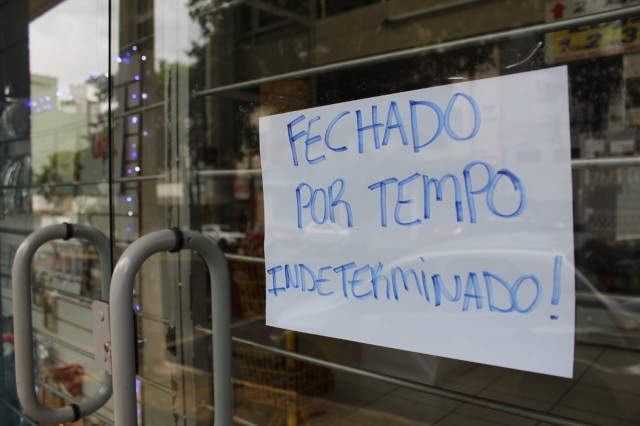 FECHADO
POR TEMPO
INDETERMINADO!